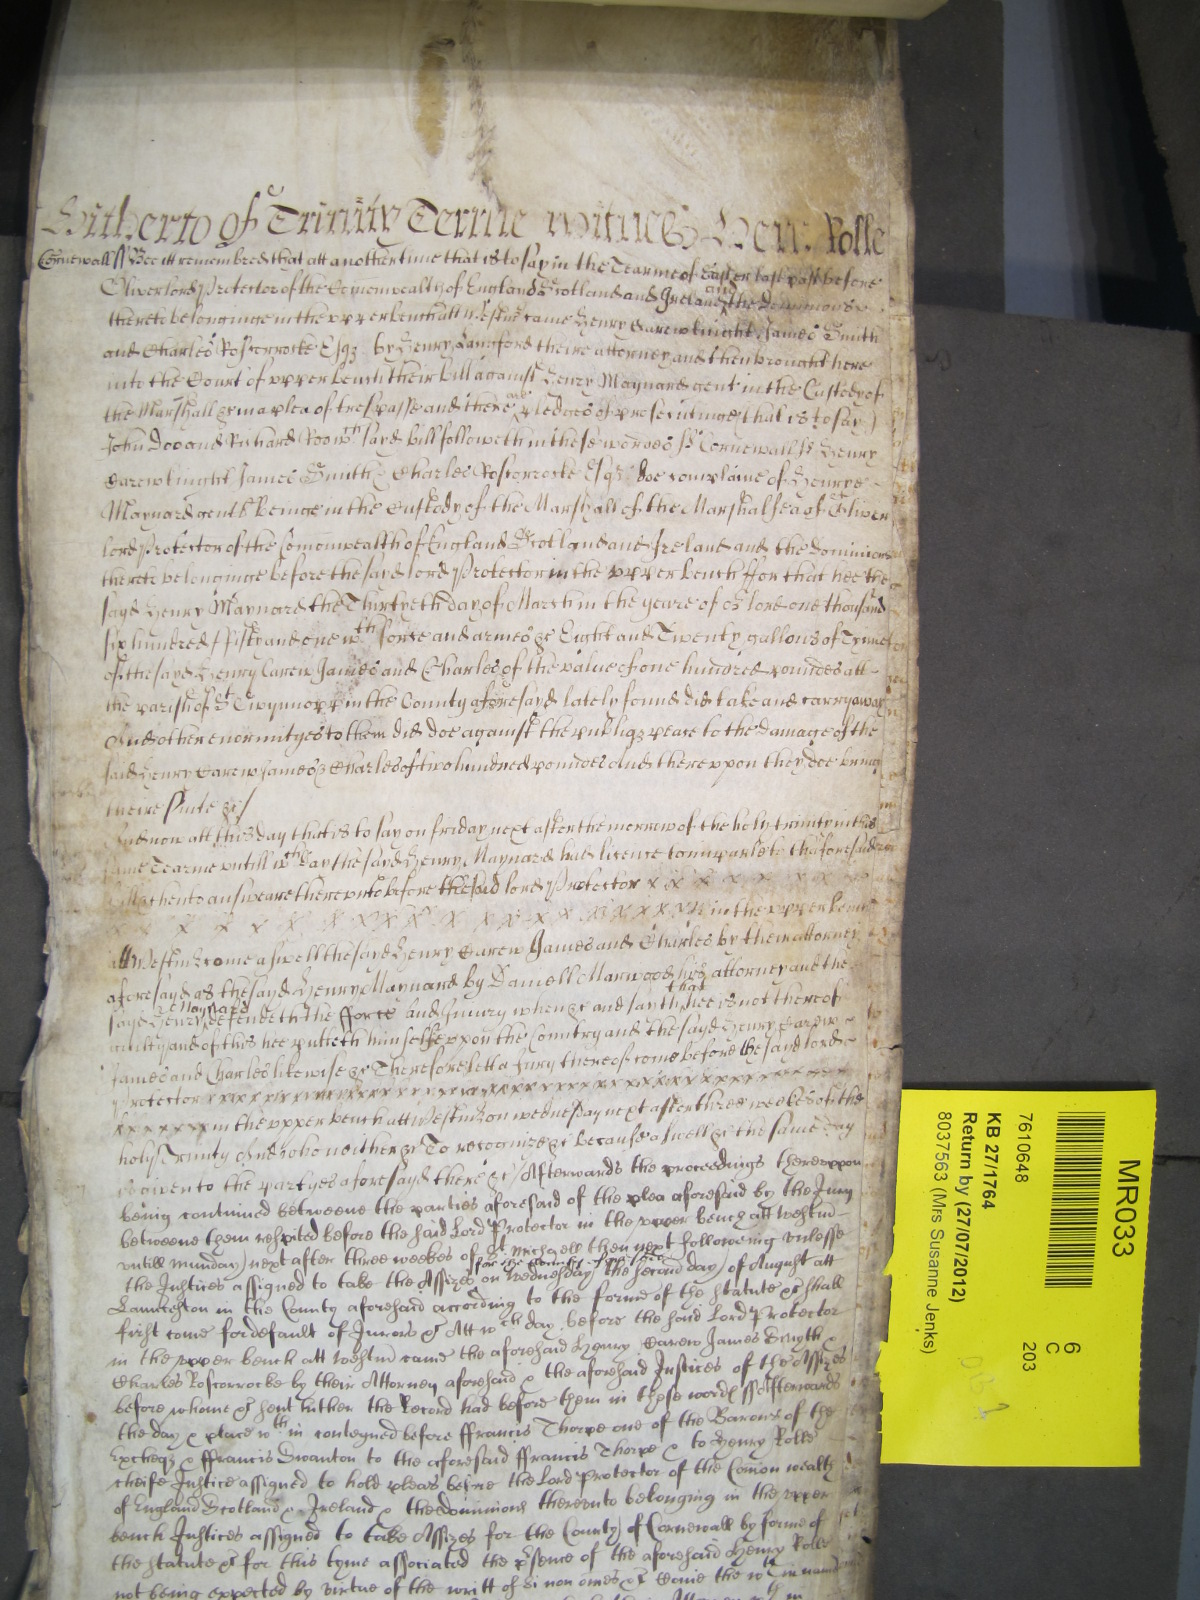 Hitherto of Trinity Terme witnes Hen: Rolle
Cornewall ss Bee itt remembred that att another time that is to say in the Tearme of Easter last past before
Oliver lord Protector of the Comonwealth of England Scotland and Ireland and the dominions
thereto belonginge in the upper bench att Westmr came Henry Carew knight James Smith
and Charles Roscorrocke Esqz by Henry Langford theire attorney and then brought here
into the Court of upper bench their bill against Henry Maynard gent in the Custody of
the Marshall &c in a plea of trespasse and there are pledges of prosecutinge (that is to say)
John Doo and Richard Roo wth sayd bill followeth in these wordes ss Cornewall ss Henry
Carew knight James Smith & Charles Roscorrocke Esqz doe complaine of Henrye
Maynard gent beinge in the Custody of the Marshall of the Marshalsea of Oliver
lord Protector of the Comonwealth of England Scotland and Ireland and the dominions
thereto belonginge before the sayd lord Protector in the upper bench ffor that hee the
sayd Henry Maynard the Thirtyeth day of March in the yeare of or lord one thousand
six hundred fifty and one wth force and armes &c Eight and Twenty gallons of Tynne
of the sayd Henry Carew James and Charles of the value of one hundred poundes att
the parish of St Twynnopp in the County aforesayd lately found did take and carry away
And other enormityes to them did doe against the publiqz peace to the damage of the
said Henry Carew James & Charles of two hundred poundes And thereupon they doe bring
theire suite &c/
And now att this day that is to say on friday next after the morrow of the holy trinity in this
same Tearme untill wth day the sayd Henry Maynard had licence to imparle to the aforesaid
bill & then to answeare thereunto before the said lord Protector x x x x x x x x
x x x x x x x x x x x x x x x in the upper bench
att Westmr come aswell the sayd Henry Carew James and Charles by their attorney
aforesayd as the sayd Henry Maynard by Daniell Marwood his attorney and the
sayd Henry Maynard defendeth the fforce and Injury when &c and sayth that hee is not thereof
guilty and of this hee putteth himselfe upon the Country and the sayd Henry Carew
James and Charles likewise &c Therefore lett a Jury thereof come before the sayd lord
Protector x x x x x x x x x x x x x x x x x x x x
x x x x x x x in the upper bench att Westmr on wednesday next after three weekes of the
holy Trinity And who neither &c To recognize &c because aswell &c the same day
is given to the partyes aforesayd there &c/ Afterwards the proceedings thereuppon
being continued betweene the parties aforesaid of the plea aforesaid by the Jury
betweene them respited before the said Lord Protector in the upper bench att Westm
untill munday next after three weekes of St Michaell then next following unlesse
the Justices assigned to take the Assizes for the County aforesaid on Wednesday the second day of August att
Launceston in the County aforesaid according to the forme of the statute &c shall
first come for default of Jurors &c Att wch day before the said Lord Protector
in the upper bench att Westm came the aforesaid Henry Carew James Smyth &
Charles Roscorrocke by their Attorney aforesaid & the aforesaid Justices of the Assizes
before whome &c sent hither the Record had before them in these words ss Afterwards
the day & place wth in conteyned before ffrancis Thorpe one of the Barons of the
Excheqz & ffrancis Swanton to the aforesaid ffrancis Thorpe & to Henry Rolle
cheife Justice assigned to hold pleas before the Lord Protector of the Comon wealth
of England Scotland & Ireland & the dominions thereunto belonging in the upper
bench Justices assigned to take Assizes for the County of Cornewall by forme of
the statute &c for this tyme associated the psence of the aforesaid Henry Rolle
not being expected by virtue of the writt of si non omes &c Came the wth in named
MR033
6
C
203
7610648
KB 27/1764
Return by (27/07/2012)
8037563 (Mrs Susanne Jenks)